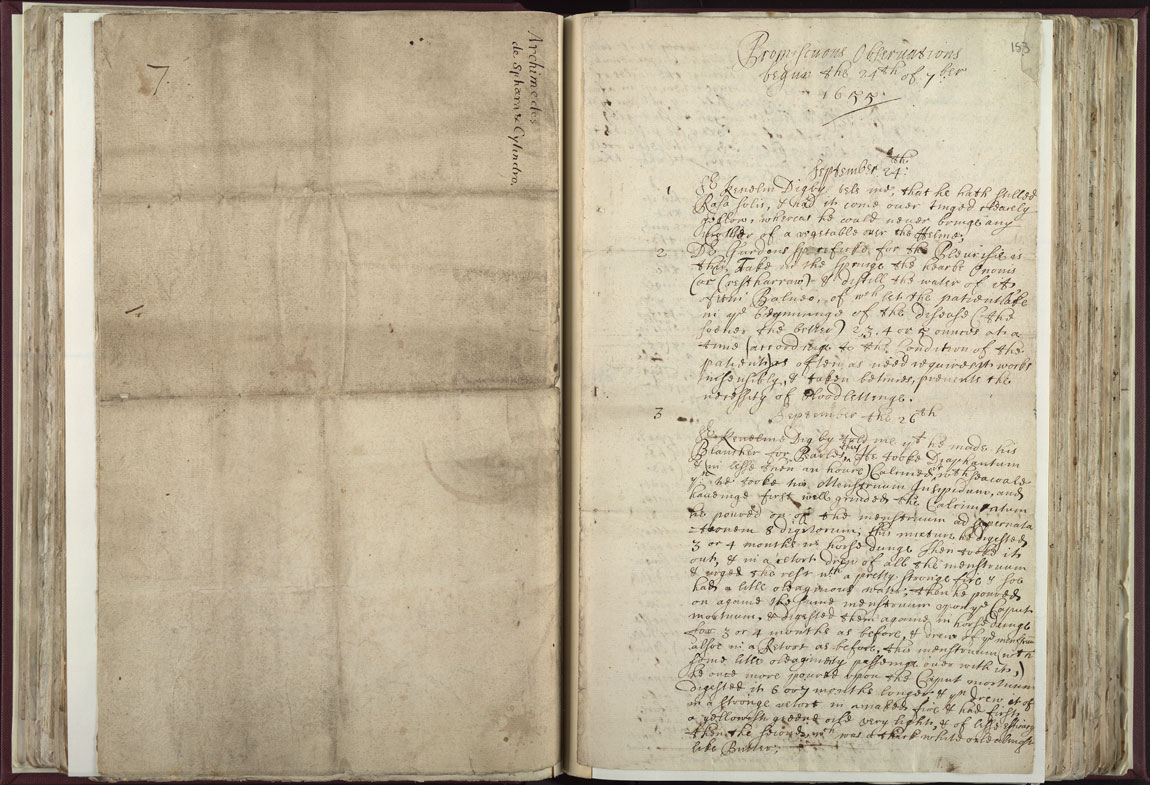 7.
Archimedes
de Sphæra & Cylindro.
153
Promiscuous Observations
begun the 24th of 7ber
1655.
September 24th:
1 Sr Kenelm Digby tels me, that he hath stilled
Rosa solis, & had it come over tinged clearely
yellow, whereas he could never bringe any
other of a vegetable over the Helme;
2 Dr specificke for the Pleurisie is
this, Take in the springe the hearbe Ononis
(or Restharrow) & distill the water of it
Balneo, of wch let the patient take
in ye beginninge of the disease (the
sooner the better) 2, 3, 4 or 5 ounces at a
time (accordinge to the Condition of the
patient) as often as need requires, it works
insensibly, & taken betimes, prevents the
necessity of bloodlettinge.
September the 26th
3 Sr Kenelme Digby told me yt he made his
for Pearls thus. He tooke
(in lesse then an houre) Calcined, with seacoale
yn he tooke his Menstruum Insipidum, and
haveinge first well grinded the Calcinatum
he poured on of the menstruum ad supernata
-tionem 8 digitorum; this mixture he digested
3 or 4 months in horse dunge then tooke it
out, & in a retort drew of all the menstruum
& urged the rest with a pretty stronge fire & soe
had a litle oleaginous water; then he poured
on againe the same menstruum upon ye Caput
mortuum, & digested them againe in horse dunge
for 3 or 4 months as before, & drew of ye menstruum
alsoe in a Retort as before, this menstruum (with
some litle oleaginety passeinge over with it,)
he once more poured upon the Caput mortuum
digested it 6 or 7 months longer & yn drew it of
in a stronge retort in a naked fire & had first
a yellowish greene oile very light, & of lesse efficacy
then the second, wch was a thick white oile almost
like Butter;